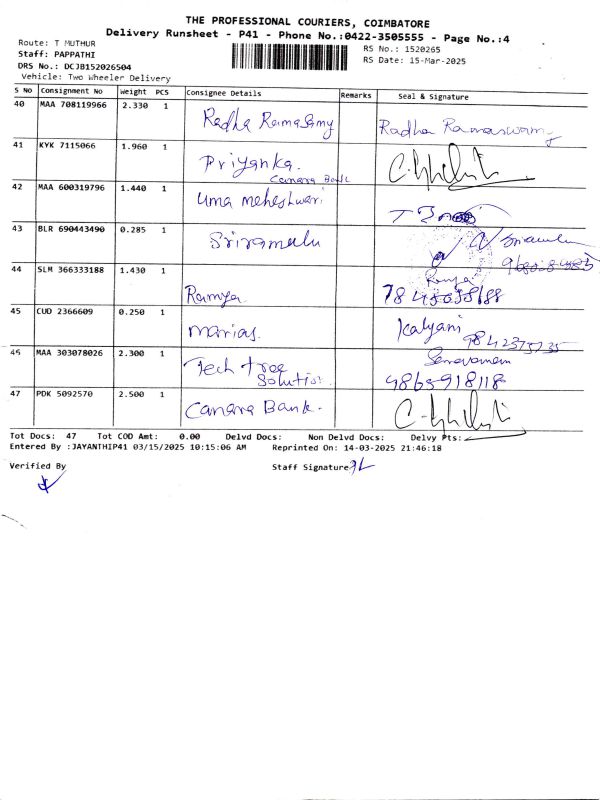 THE PROFESSIONAL COURIERS, COIMBATORE
Delivery Runsheet - P41 - Phone No.:0422-3505555 - Page No.:4
Route: T MUTHUR
RS No.: 1520265
Staff: PAPPATHI
RS Date: 15-Mar-2025
DRS No.: DCJB152026504
Vehicle: Two Wheeler Delivery
S No Consignment No Weight PCS Consignee Details Remarks Seal & Signature
40 MAA 708119966 2.330 1 Radha Ramasamy Radha Ramaswamy
41 KYK 7115066 1.960 1 Priyanka.
Canara Bank
42 MAA 600319796 1.440 1 Uma Meheshwari
43 BLR 690443490 0.285 1 Sriramalu
44 SLM 366333188 1.430 1 Ramya Ramya
45 CUD 2366609 0.250 1 Marias. Kalyani
46 MAA 303078026 2.300 1 Tech tree
Solution
47 PDK 5092570 2.500 1 Canara Bank.
Tot Docs: 47 Tot COD Amt: 0.00 Delvd Docs: Non Delvd Docs: Delvy Pts:
Entered By :JAYANTHIP41 03/15/2025 10:15:06 AM Reprinted On: 14-03-2025 21:46:18
Verified By Staff Signature